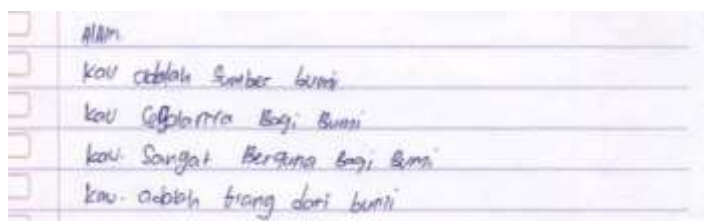 Alam
kau adalah Sumber bumi
kau Segalanya Bagi Bumi
kau. Sangat Berguna Bagi Bumi
kau. adalah trang dari bumi